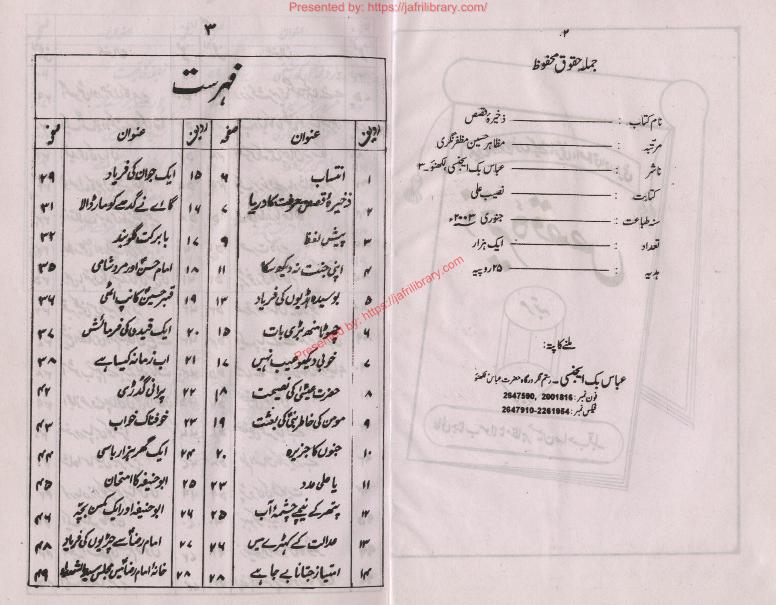 Presented by: https://jafrilibrary.com/
۲
جملہ حقوق محفوظ
نام کتاب : ذخیرۂ قصص
مرتبہ : مظاہر حسین مظفر نگری
ناشر : عباس بک ایجنسی لکھنؤ۔۳
کتابت : نصیب علی
سنہ طباعت : جنوری ۲۰۰۳ء
تعداد : ایک ہزار
ہدیہ : ۲۵ روپیہ
ملنے کا پتہ:
عباس بک ایجنسی۔ رستم نگر درگاہ حضرت عباس لکھنؤ
فون نمبر: 2647590, 2001816
فیکس نمبر: 2647910-2261954
۳
فہرست
عنوان صفحہ عنوان صفحہ
۱ انتساب ۶ ۱۵ ایک جوان کی فریاد ۲۹
۲ ذخیرۂ قصص معرفت کا دریا ۷ ۱۶ گائے نے گدھے کو مار ڈالا ۳۱
۳ پیش لفظ ۹ ۱۷ بابرکت گلوبند ۳۲
۴ اپنی جنت نہ دیکھ سکا ۱۱ ۱۸ امام حسنؑ اور مرد شامی ۳۵
۵ بوسیدہ ہڈیوں کی فریاد ۱۳ ۱۹ قبر حسینؑ کانپ اٹھی ۳۶
۶ چھوٹا منھ بڑی بات ۱۵ ۲۰ ایک قیدی کی فرمائش ۳۷
۷ خوبی دیکھو عیب نہیں ۱۷ ۲۱ اب زمانہ کیسا ہے ۳۸
۸ حضرت عیسیٰؑ کی نصیحت ۱۸ ۲۲ پرانی گدڑی ۴۲
۹ مومن کی خاطر نبیؐ کی بعثت ۱۹ ۲۳ خوفناک خواب ۴۳
۱۰ جنوں کا جزیرہ ۲۰ ۲۴ ایک گھر ہزار باسی ۴۴
۱۱ یا علی مدد ۲۳ ۲۵ ابو حنیفہ کا امتحان ۴۵
۱۲ پتھر کے نیچے چشمۂ آب ۲۵ ۲۶ ابو حنیفہ اور ایک کمسن بچہ ۴۶
۱۳ عدالت کے کٹہرے میں ۲۶ ۲۷ امام رضاؑ سے چڑیوں کی فریاد ۴۸
۱۴ امتیاز جتانا بے جا ہے ۲۸ ۲۸ خانۂ امام رضاؑ میں مجلس سید الشہداؑ ۴۹
Presented by: https://jafrilibrary.com/